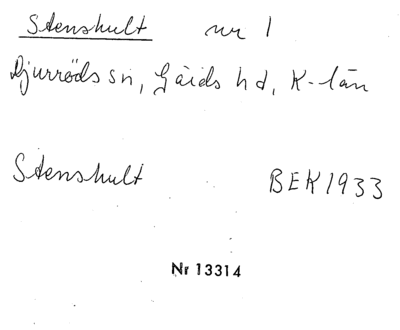 Stenshult nr 1
Djurröds sn, Gärds hd, K-län
Stenshult BEK 1933
Nr 13314